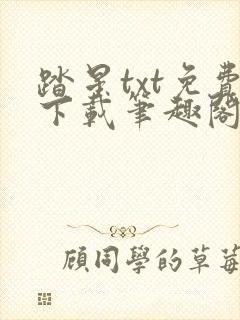 踏景txt免費
下載筆趣閣
顧同學的草莓